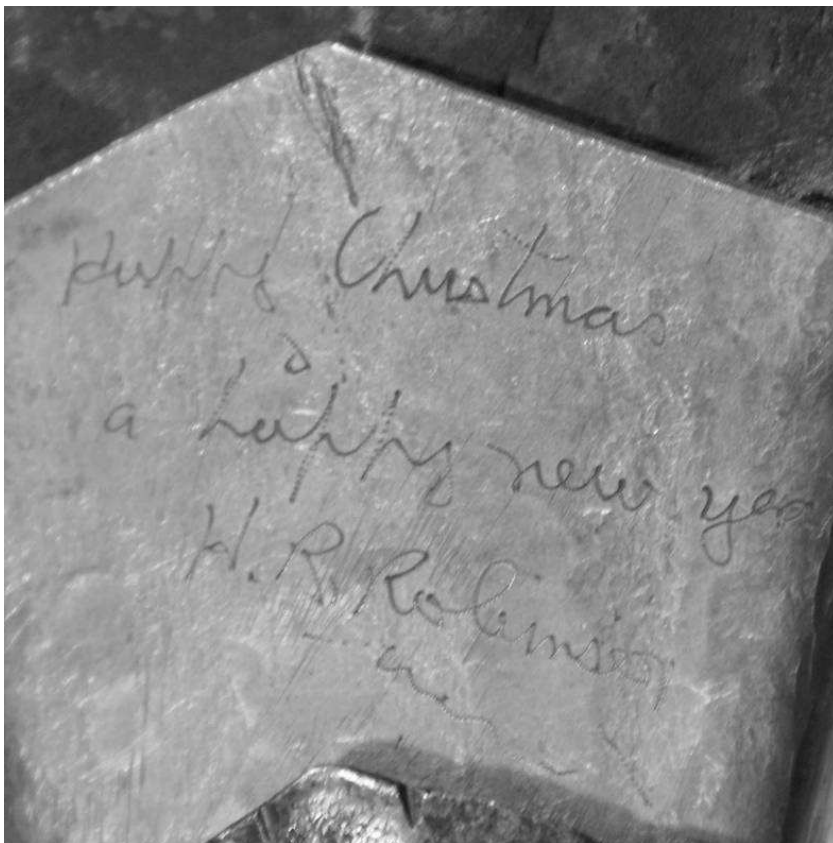 Happy Christmas
&
a happy new year
H. R. Robinson